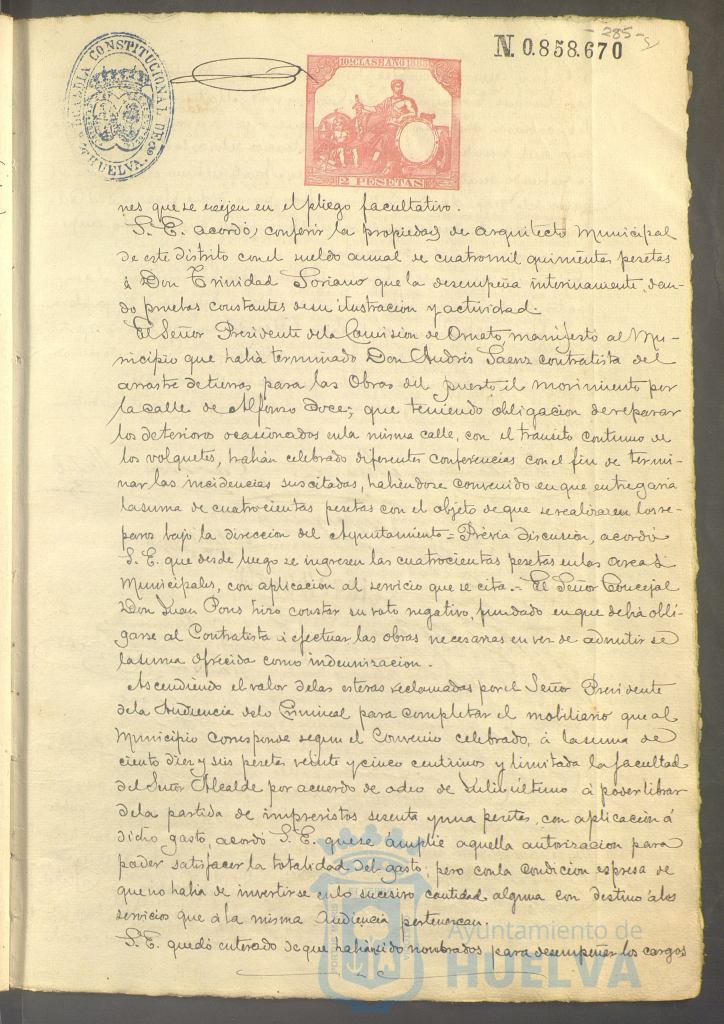 285
N. 0.858.670
ALCALDIA CONSTITUCIONAL DE HUELVA.
10ª CLASE AÑO 1883
2 PESETAS
nes que se exijen en el pliego facultativo.
S. E. acordó, conferir la propiedad de arquitecto Municipal
de este distrito con el sueldo anual de cuatromil quinientas pesetas
á Don Trinidad Soriano que la desempeña interinamente, dan-
do pruebas constantes de su ilustracion y actividad.
El Señor Presidente de la Comision de Ornato, manifestó al Mu-
nicipio que habia terminado Don Andrés Saenz contratista del
arrastre de tierras para las Obras del puerto, el movimiento por
la calle de Alfonso doce; que teniendo obligacion de reparar
los deterioros ocasionados en la misma calle, con el tránsito continuo de
los volquetes, habian celebrado diferentes conferencias con el fin de termi-
nar las incidencias suscitadas, habiendose convenido en que entregaria
la suma de cuatrocientas pesetas con el objeto de que se realizasen los re-
paros bajo la direccion del Ayuntamiento = Prévia discusion, acordó
S. E. que desde luego se ingresen las cuatrocientas pesetas en las arcas
Municipales, con aplicacion al servicio que se cita. = El Señor Concejal
Don Juan Pons hizo constar su voto negativo, fundado en que debia obli-
garse al Contratista á efectuar las obras necesarias en vez de admitirse
la suma ofrecida como indemnizacion.
Ascendiendo el valor de las esteras reclamadas por el Señor Presidente
de la Audiencia de lo Criminal para completar el mobiliario que al
Municipio corresponde segun el Convenio celebrado, á la suma de
ciento diez y seis pesetas veinte y cinco centimos y limitada la facultad
del Señor Alcalde por acuerdo de ocho de Julio último á poder librar
de la partida de imprevistos sesenta y una pesetas, con aplicacion á
dicho gasto, acordó S. E. que se ámplie aquella autorizacion para
poder satisfacer la totalidad del gasto; pero con la condicion espresa de
que no habia de invertirse en lo sucesivo cantidad alguna con destino á los
servicios que á la misma Audiencia pertenezcan.
S. E. quedó enterado de que habian sido nombrados para desempeñar los cargos
Ayuntamiento de
HUELVA